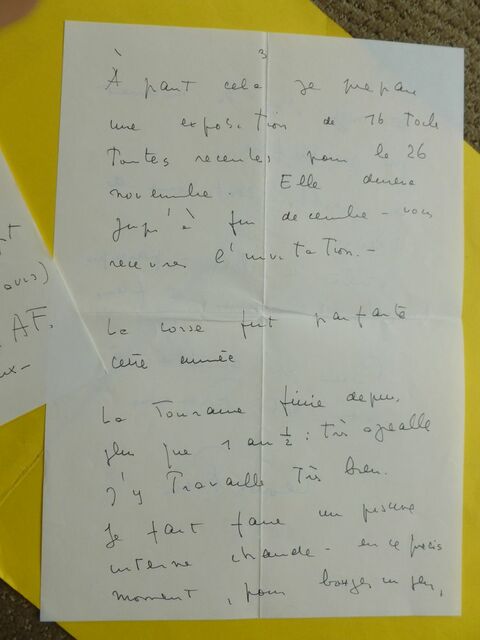 3
À part cela je prépare
une exposition de 16 toiles
Toutes recentes pour le 26
novembre. Elle durera
jusqu'à fin decembre - vous
recevrez l'invitation. -
La Corse fut parfaite
cette année
La Touraine finie depuis
plus que 1 an ½ : très agréable
J'y Travaille Très bien.
Je fait faire un piscine
interne chaude - en ce précis
moment, pour bouger un peu,
AF.